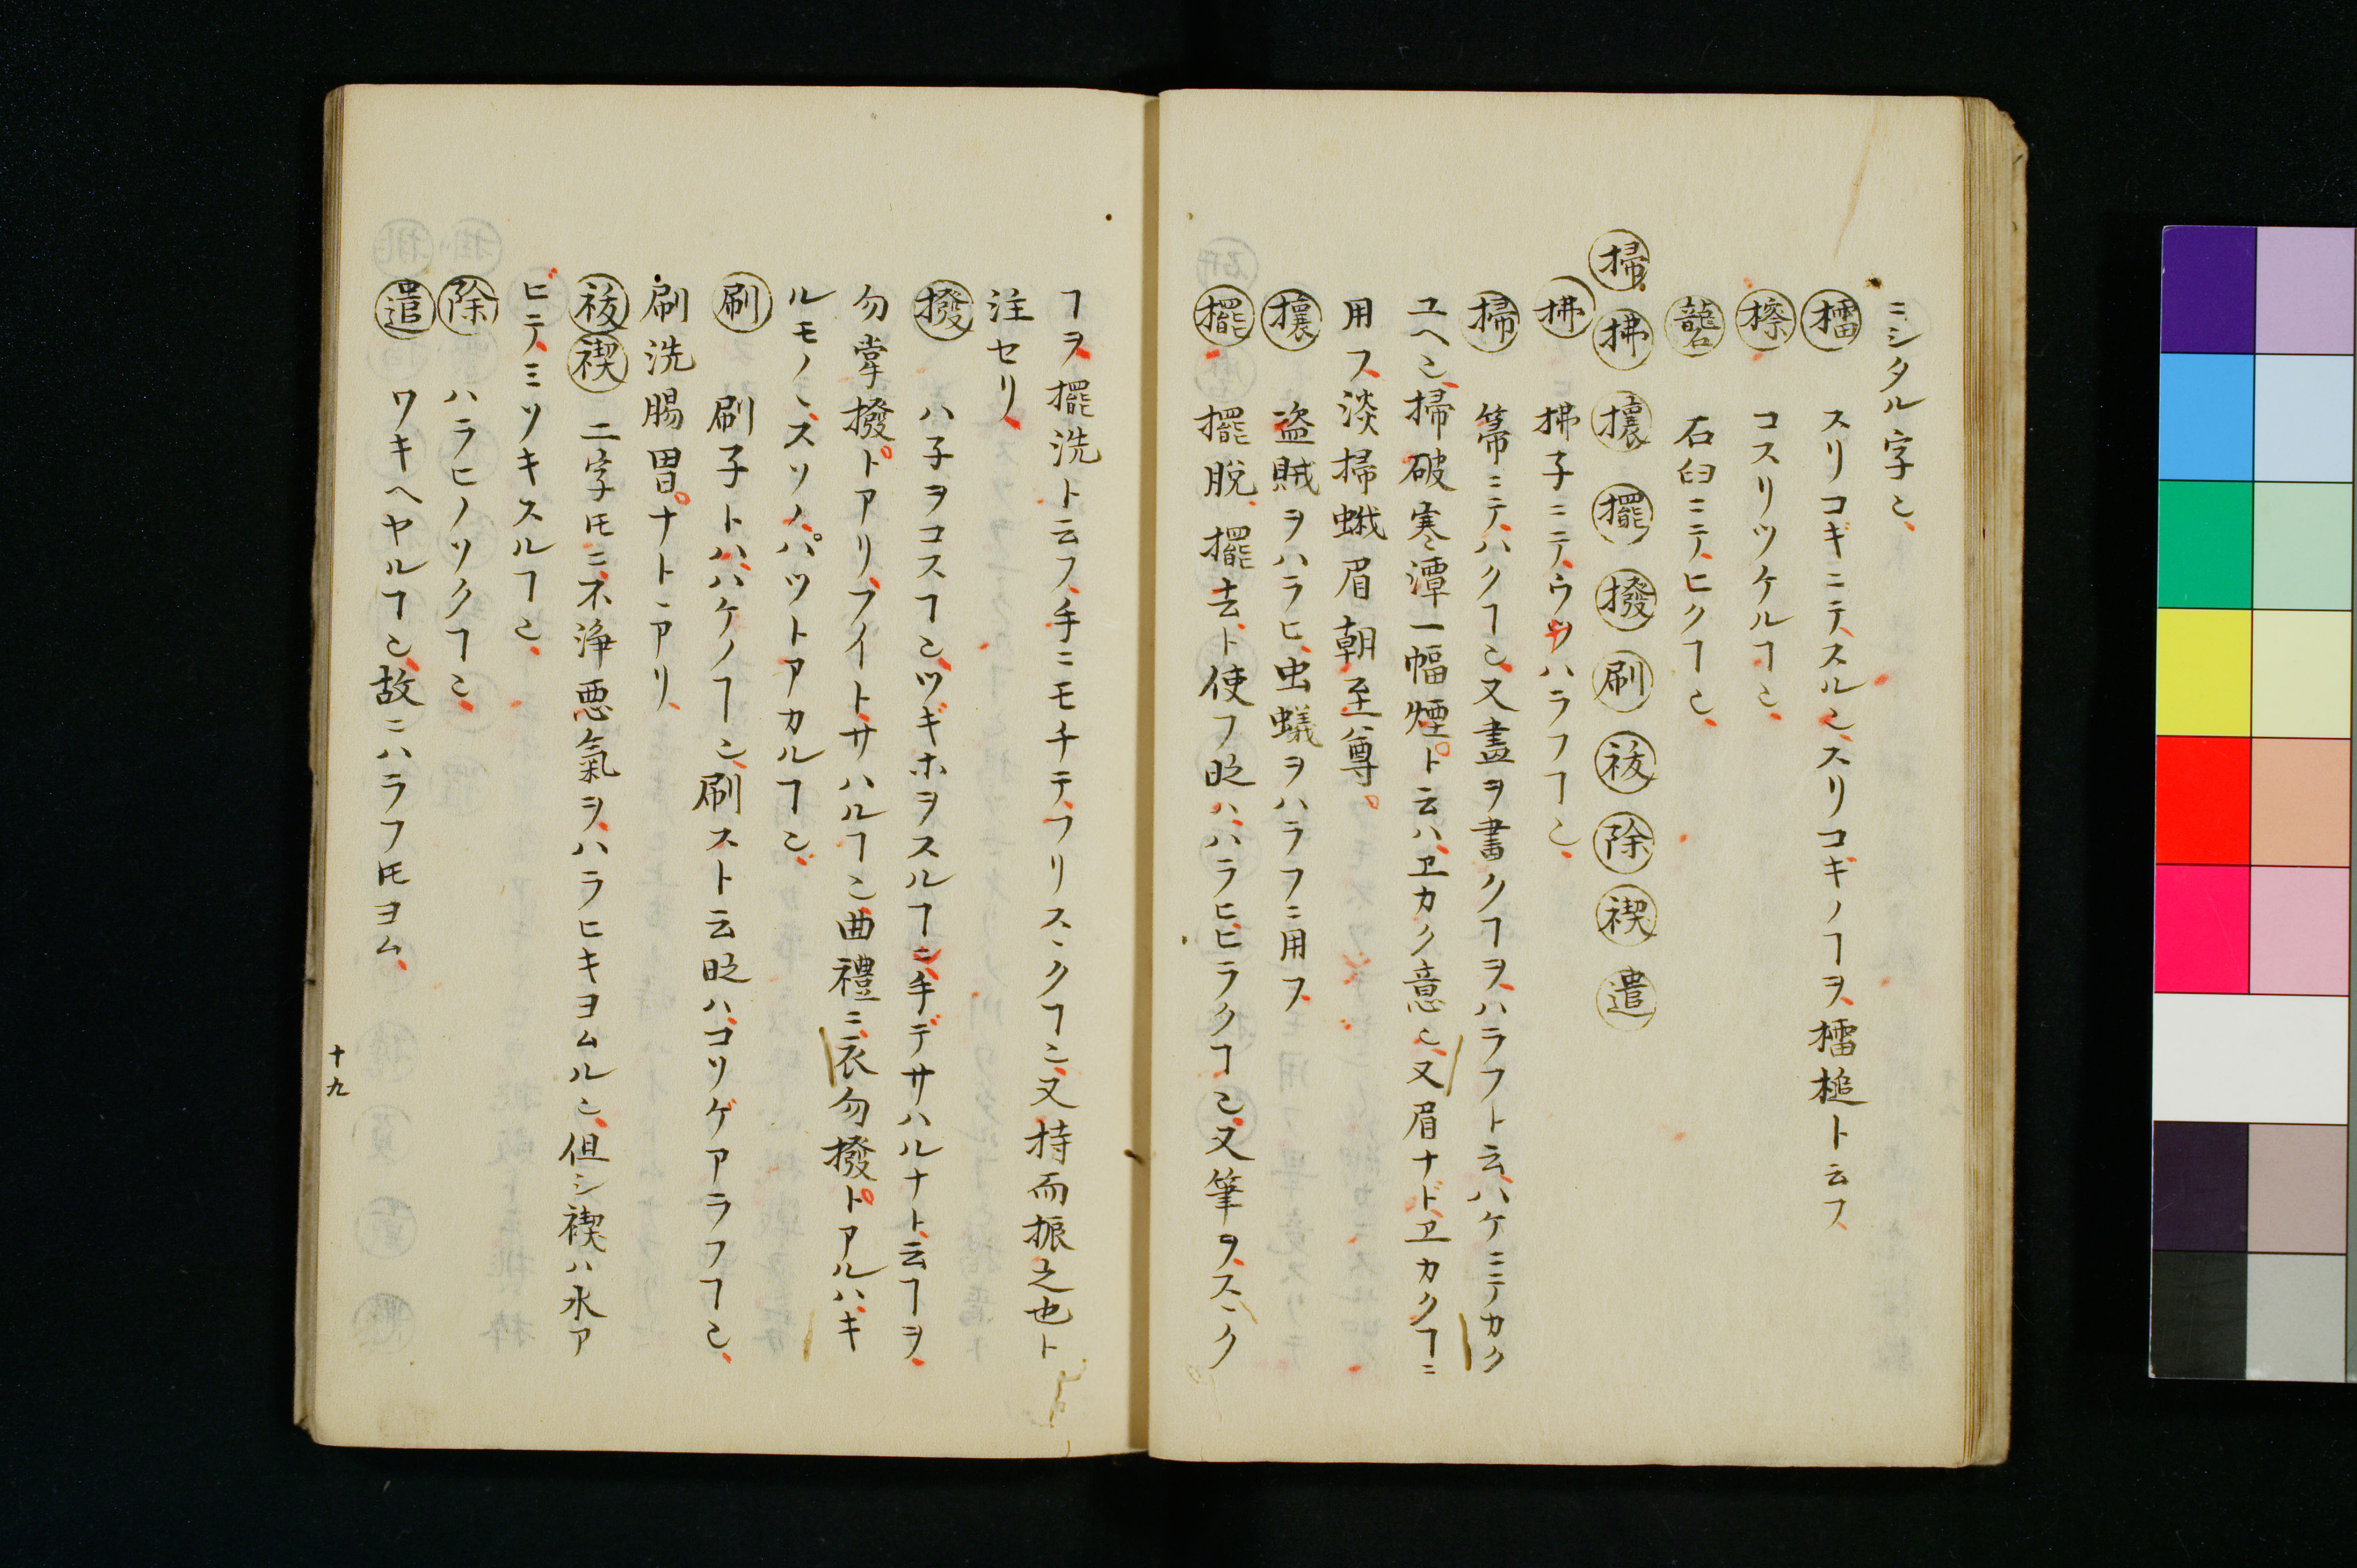 ニシタル字也、
擂 スリコギニテ、スル也、スリコギノヿヲ、擂槌ト云フ、
擦 コスリツケルヿ也、
礱 石臼ニテ、ヒクヿ也、
掃 拂 攘 擺 撥 刷 祓 除 禊 遣
拂 拂子ニテ、ウツハラフヿ也、
掃 箒ニテ、ハクヿ也、又畫ヲ書クヿヲ、ハラフト云、ハケニテカク
ユヘ也、掃破寒潭一幅煙。ト云ハ、ヱカク意也、又眉ナドヱカクヿニ
用フ、淡掃蛾眉朝至尊。
攘 盗賊ヲハラヒ、虫蟻ヲハラフニ用ヌ
擺 擺脱、擺去、ト使フ時ハ、ハラヒヒラクヿ也、又筆ヲ、スヽク
ヿヲ、擺洗ト云フ、手ニモチテ、フリスヽクヿ也、又持而振之也ト
注セリ、
撥 ハ子ヲコスヿ也、ツギホヲスルヿニ、手デサハルナト、云ヿヲ、
勿掌撥。トアリ、フイトサハルヿ也、曲禮ニ、衣勿撥。トアルハ、キ
ルモノヽ、スソノ、パツトアカルヿ也、
刷 刷子トハ、ハケノヿ也、刷スト云時ハ、コソゲアラフヿ也、
刷洗腸胃。ナトヽアリ、
祓禊 二字𪜈ニ、不淨悪氣ヲ、ハラヒキヨムル也、但シ禊ハ水ア
ビテ、ミソキスルヿ也、
除 ハラヒノソクヿ也、
遣 ワキヘヤルヿ也、故ニハラフ𪜈ヨム、
十九